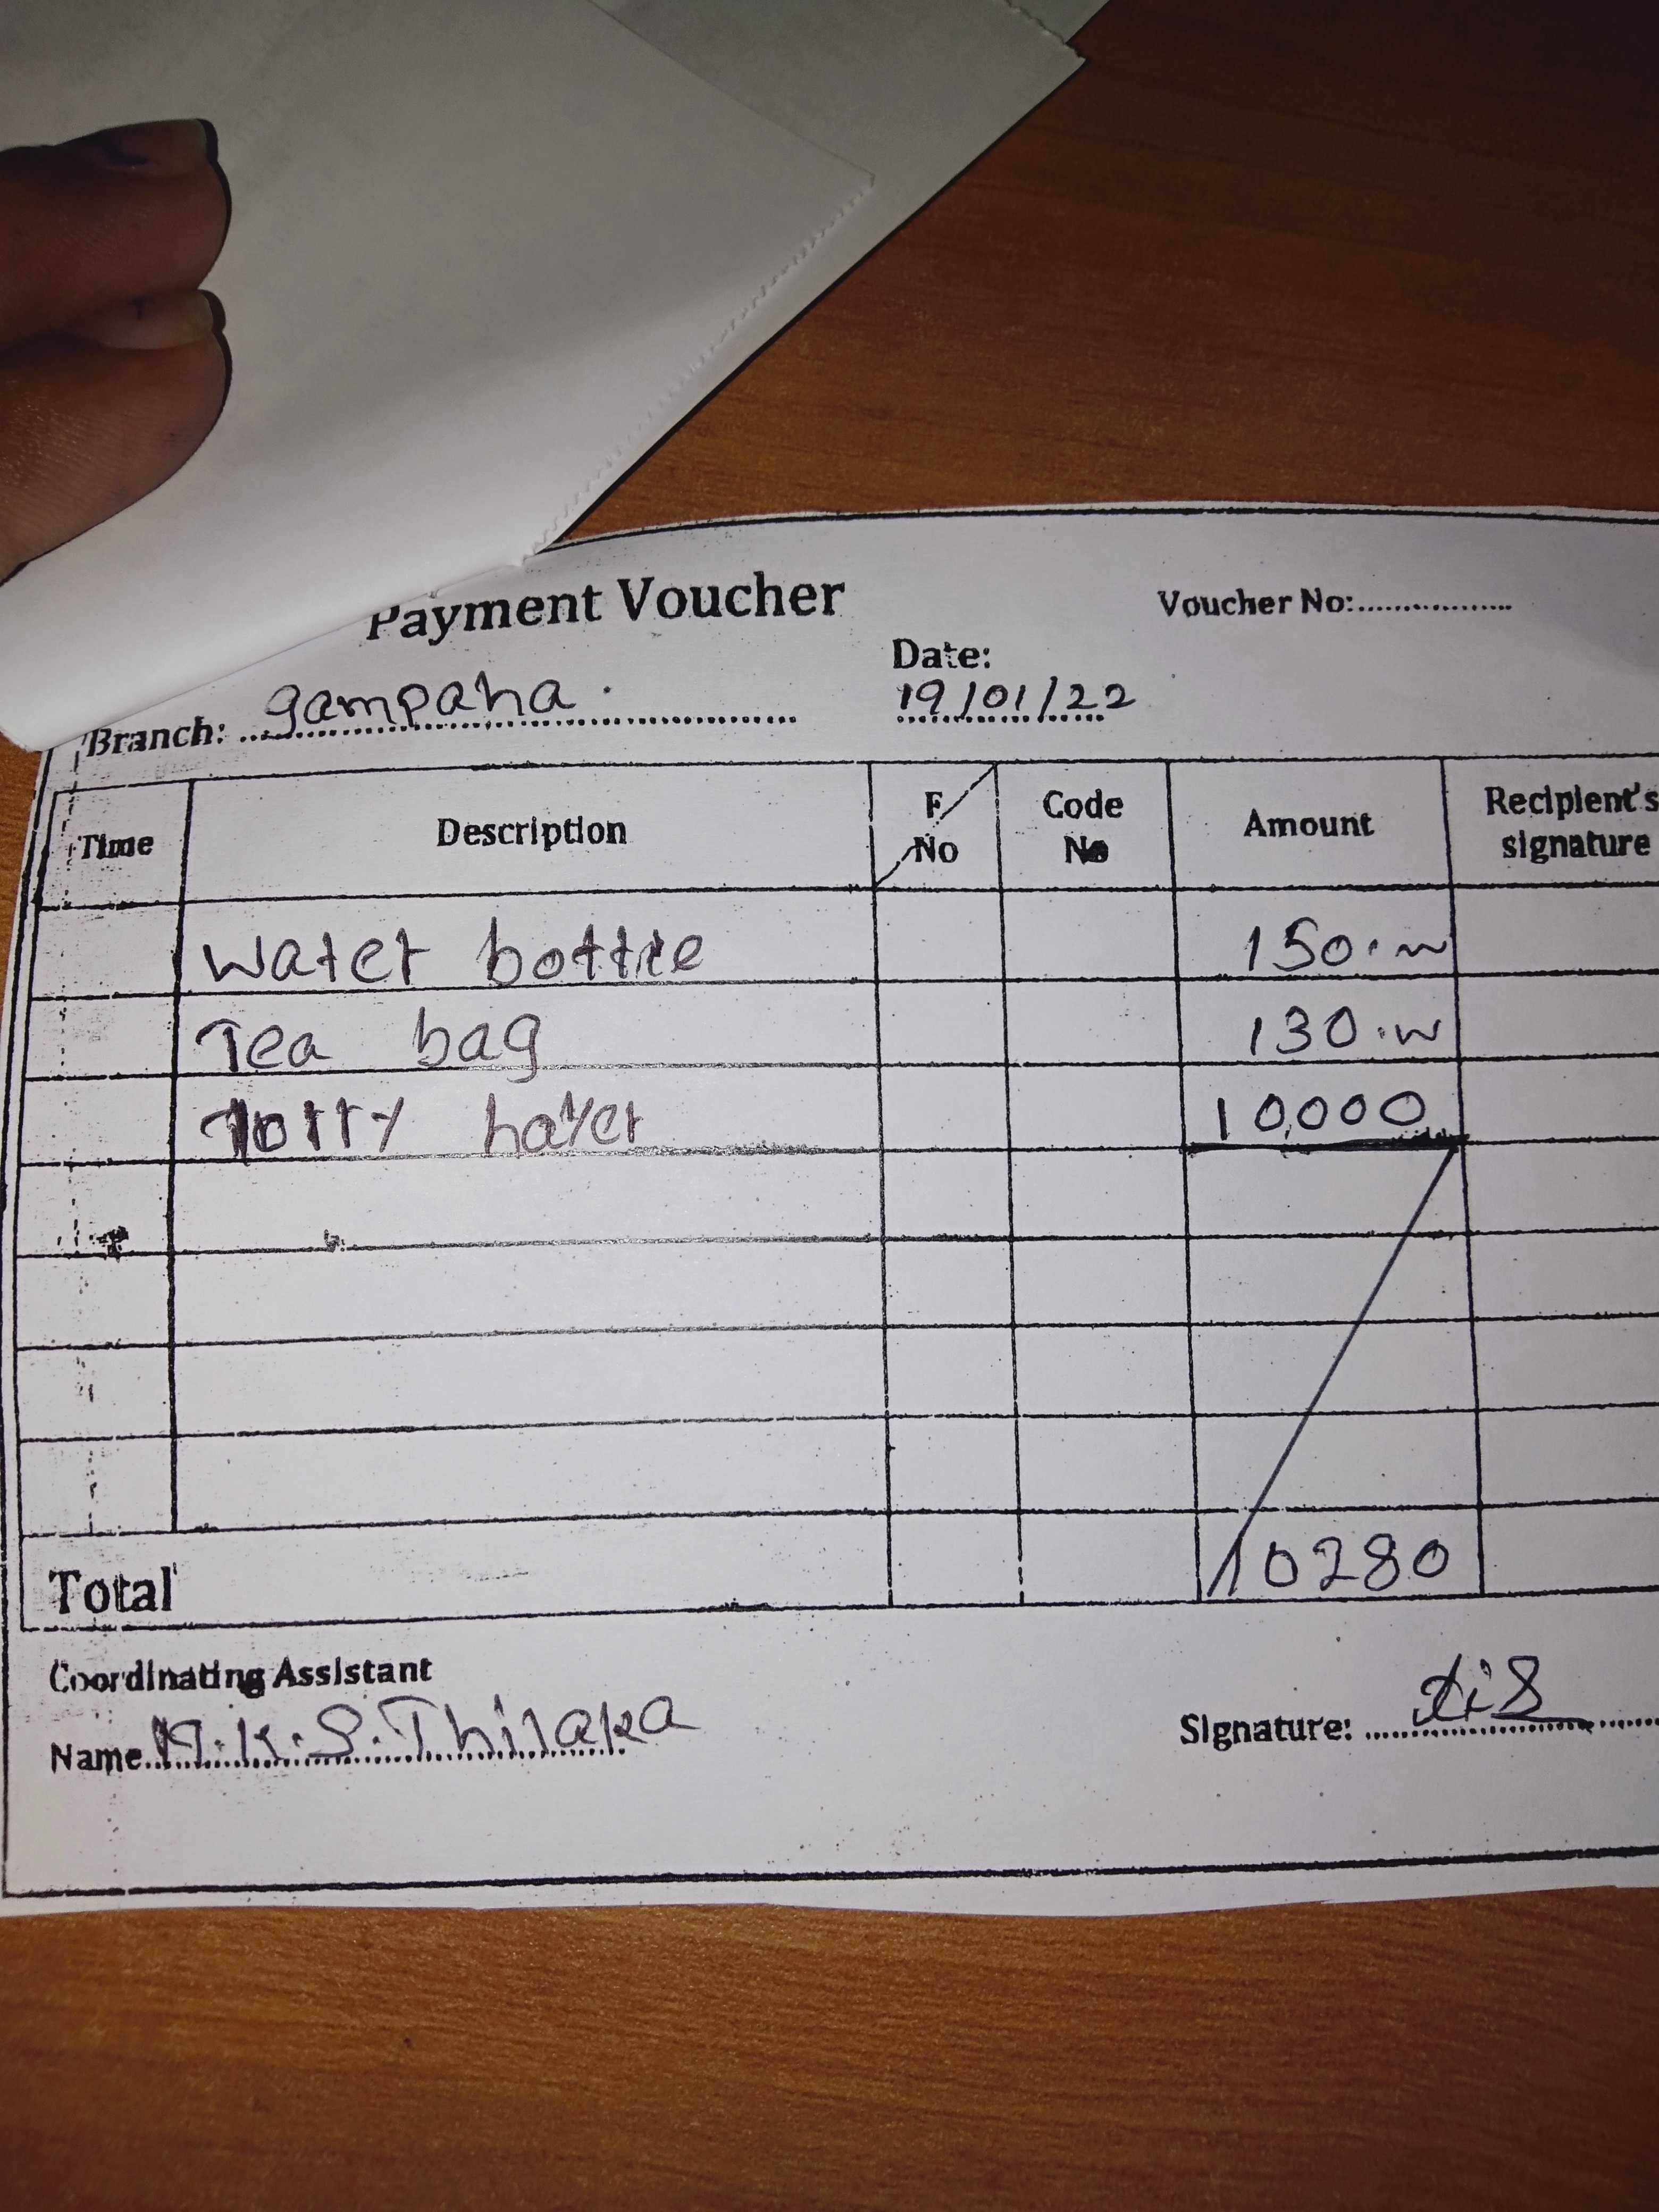 Payment Voucher
Voucher No:..................
Date:
19/01/22
Branch: gampaha.
Time Description F/No Code No Amount Recipient's signature
Water bottle 150.00
Tea bag 130.00
10,000
Total 10280
Coordinating Assistant
Name K.S.Thilaka
Signature: